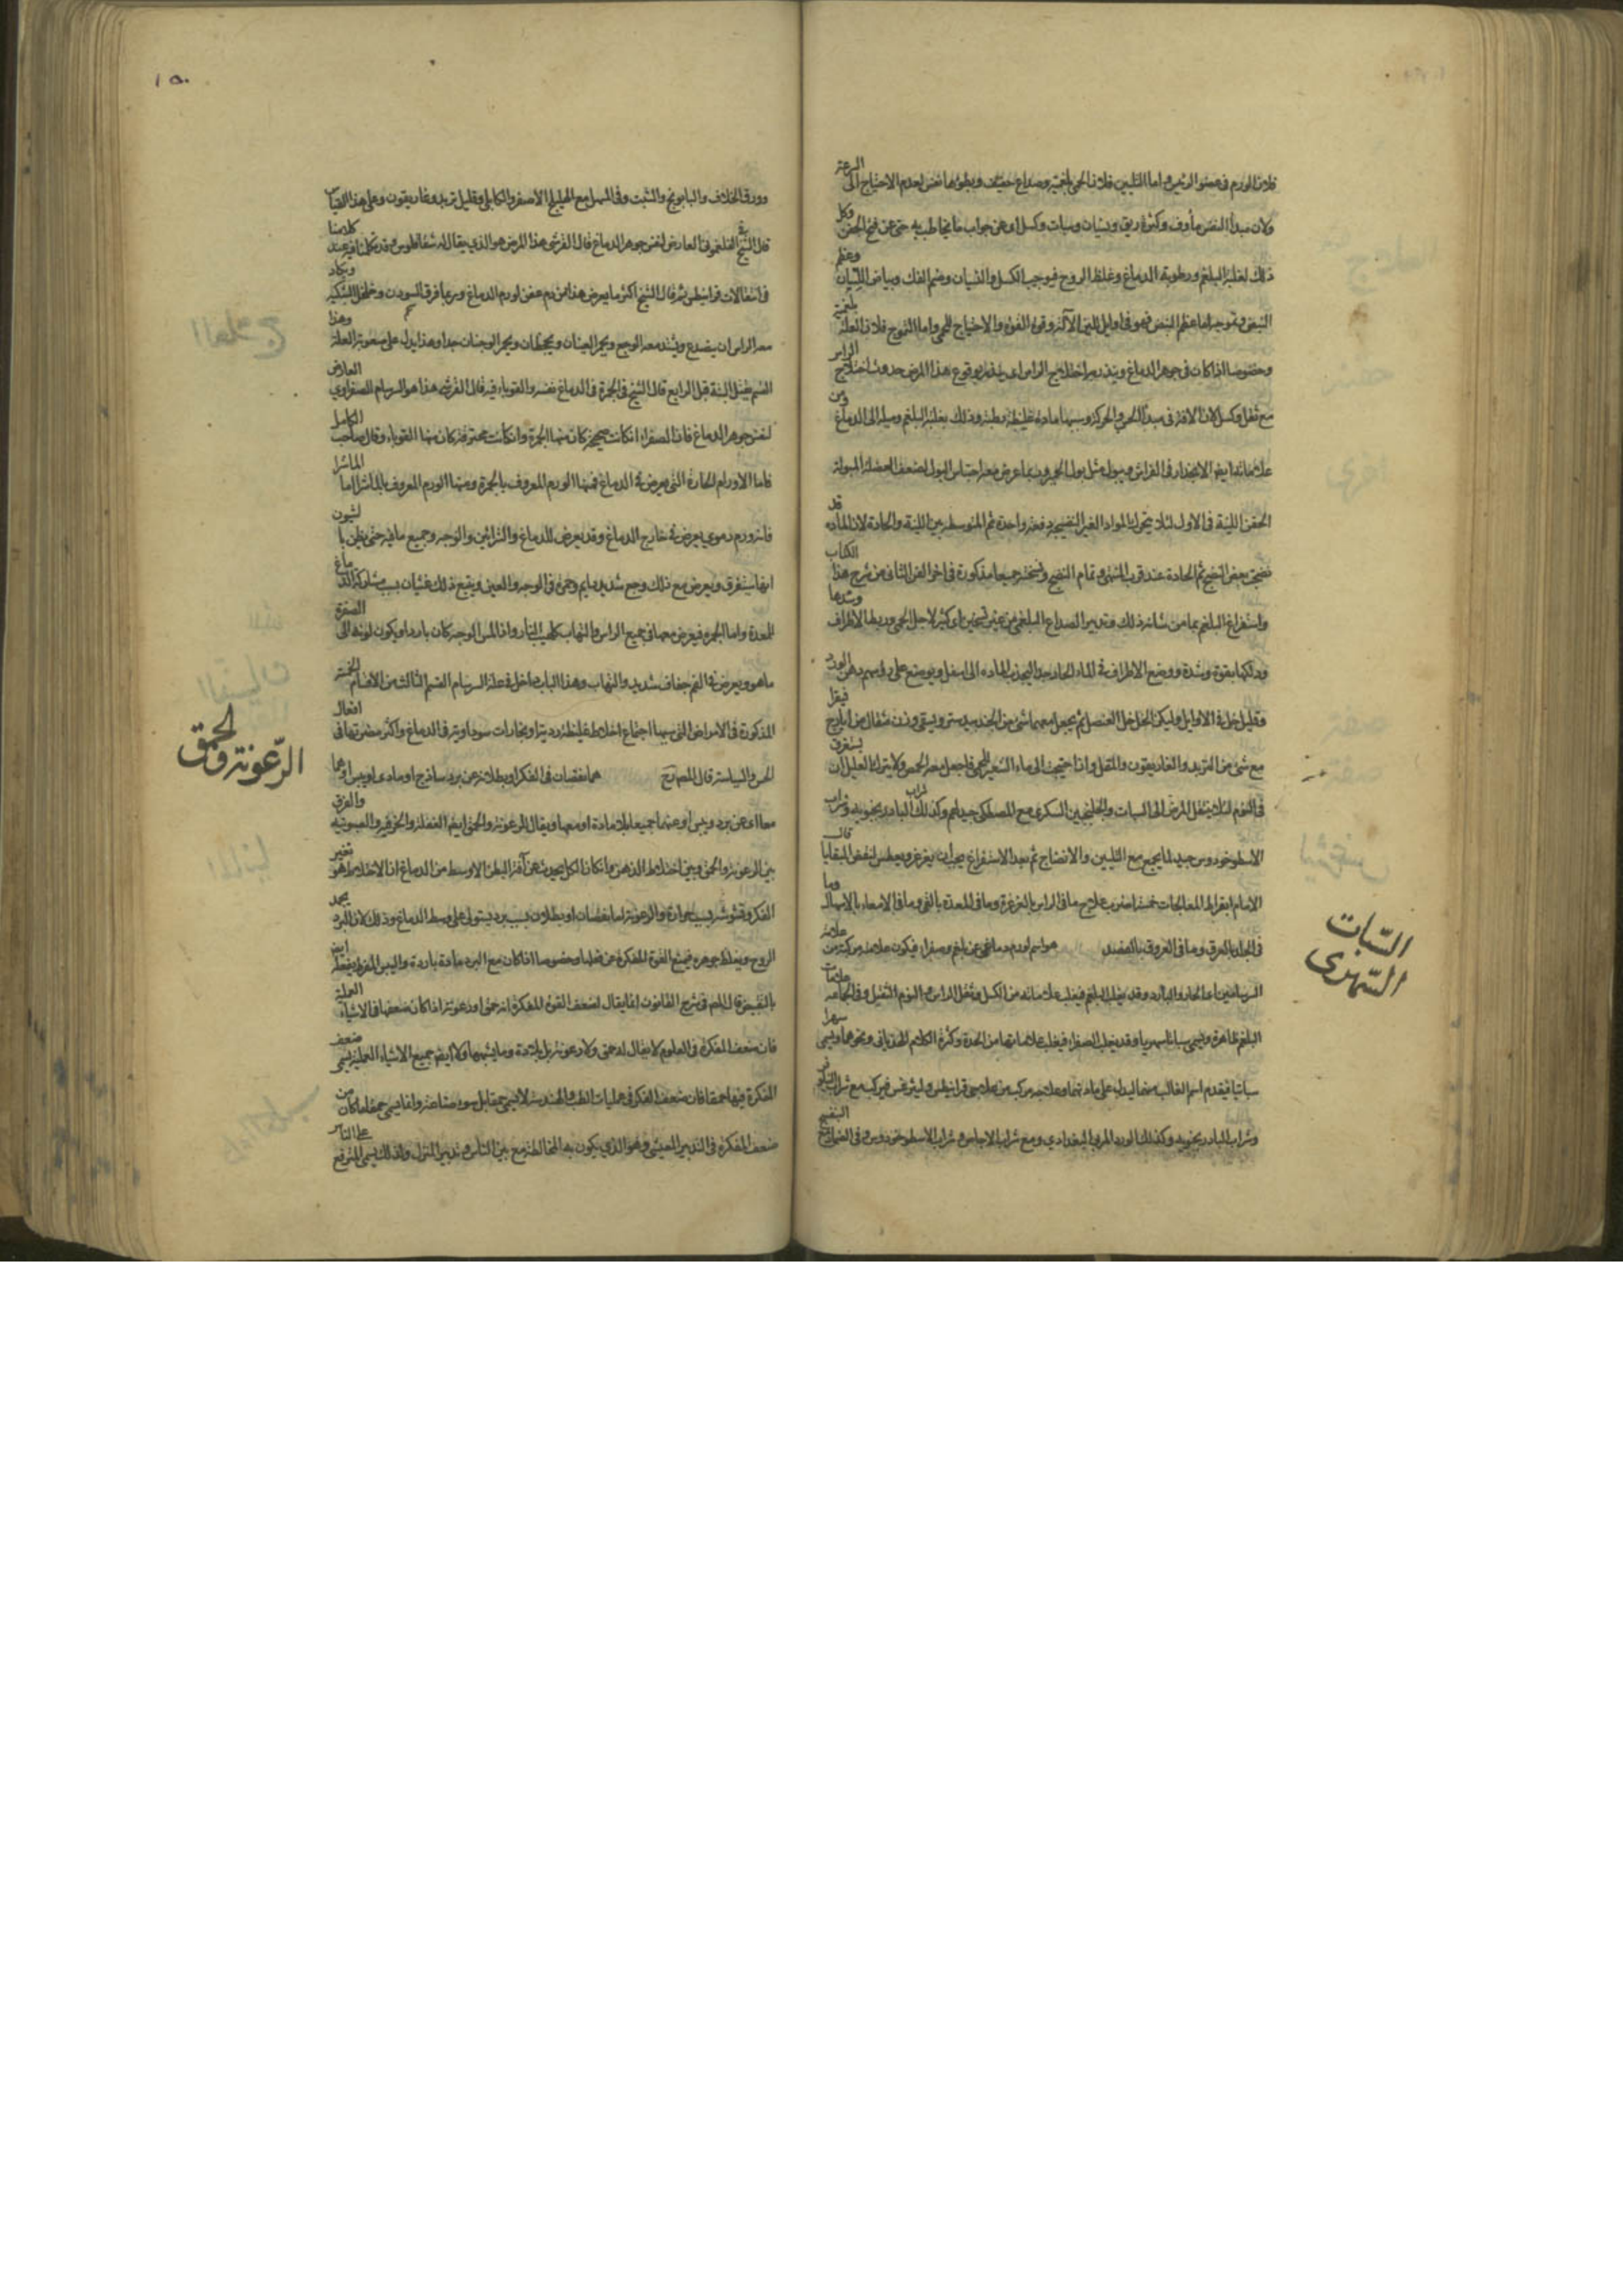 فلان الورم في عضو الرئيس واما التليين فلان الحمى بلغمية وصداع خفيف وبطؤها نقص لعدم الاحتياج الى السرعة
ولان مبدأ النفس مأوف وكثرة ريق ونسيان وسبات وكسل اى عن جواب ما يخاطب به حتى عن فتح الجفن وكل
ذلك لغلبة البلغم ورطوبة الدماغ وغلظ الروح فيوجب الكسل والنسيان وضم الفك وبياض اللسان وعظم
النبض وتموجه اما عظم النبض فهو في اوايل للين الآلة وقوة القوة والاحتياج للحمى واما التموج فلان العلة بلغمية
وخصوصا اذا كانت في جوهر الدماغ وينذر به اختلاج الراس اى ينذر بوقوع هذا المرض حدوث اختلاج الراس
مع ثقل وكسل لان الافة في مبدأ الحس والحركة وسببها مادة غليظة بطيئة وذلك بغلبة البلغم وميله الى الدماغ ومن
علاماته ايضا الانحدار في الفراش ويبوله مثل بول الحمير وربما عرض معه احتباس البول لضعف العضلة المبولة
الحقن اللينة في الاول لئلا يتحرك المواد الغير النضيجة دفعة واحدة ثم المتوسطة بين اللينة والحادة لان المادة قد
نضجت بعض النضج ثم الحادة عند قرب المنتهى وتمام النضج ونسختها جميعا مذكورة في اخر الفن الثاني من شرح هذا الكتاب
واستفراغ البلغم بما من شانه ذلك وتدبير الصداع البلغمي من غير تسخين اى كثير لاجل الحمى وربط الاطراف وشدها
ودلكها بقوة وشدة ووضع الاطراف في الماء الحار جدا ليجذب المادة الى اسفل ويوضع على رؤسهم دهن الورد
وقليل خل في الاوايل وليكن الخل خل العنصل ثم يجعل معهما شئ من الجندبيدستر ويسقى وزن مثقال من ايارج فيقرا
مع شئ من التربد والغاريقون والمقل واذا احتيج الى ماء الشعير للحمى فاجعل معه الحمص ولا يترك العليل ان يستغرق
في النوم لئلا ينتقل المرض الى السبات والجلنجبين السكرى مع المصطكى جيد لهم وكذلك شراب البادرنجبويه وشراب
الاسطوخودوس جيد لما يجمع مع التليين والانضاج ثم بعد الاستفراغ يجب ان يغرغر ويعطس لنفض البقايا قال
الامام ابقراط المعالجات خمسة اضرب علاج ما في الراس بالغرغرة وما في المعدة بالقئ وما في الامعاء بالاسهال وما
في الجلد بالعرق وما في العروق بالفصد هو اسم لورم دماغي عن بلغم وصفراء فيكون علامته مركبة من علامة
السرسامين اعنى الحار والبارد وقد يغلب البلغم فيغلب علاماته من الكسل وثقل الراس والنوم الثقيل وفي الجملة علامات
البلغم ظاهرة ويسمى سباتا سهريا وقد يغلب الصفراء فيغلب علاماتها من الحدة وكثرة الكلام الهذيانى ونحوهما ويسمى سهرا
سباتيا فيقدم اسم الغالب منهما ليدل على مادتهما وعلاجه مركب من علاجى قرانيطس وليثرغس فيركب مع شراب
وشراب البادرنجبويه وكذلك الورد المربى البغدادى ومع شراب الاجاص وشراب الاسطوخودوس وفي الضماد البنفسج
السّبات
السّهرى
١٥٠
وورق الخلاف والبابونج والشبت وفي المسهل مع الهليلج الاصفر والكابلى وقليل تربد وغاريقون وعلى هذا القياس
قال الشيخ الفلغمونى العارض لنفس جوهر الدماغ قال القرشى هذا المرض هو الذى يقال له شقاقلوس وقد تكلمنا فيه عند كلامنا
في انتقالات قرانيطس ثم قال الشيخ اكثر ما يعرض هذا من دم عفن لورم الدماغ وربما فرق الشؤون وخلخل الشبكية ويكاد
معه الراس ان يتصدع ويشتد معه الوجع ويحمر العينان ويجحظان ويحمر الوجنتان جدا وهذا يدل على صعوبة العلة وهذا
القسم يقتل البتة قبل الرابع قال الشيخ في الحمرة في الدماغ نفسه والقوباء فيه قال القرشى هذا هو السرسام الصفراوى العارض
لنفس جوهر الدماغ فان الصفراء ان كانت صحيحة كان منها الحمرة وان كانت محترقة كان منها القوباء وقال صاحب الكامل
فاما الاورام الحارة التى تعرض في الدماغ فمنها الورم المعروف بالحمرة ومنها الورم المعروف بالماشرا اما الماشرا
فانه ورم دموى يعرض في خارج الدماغ وقد يعرض للدماغ والشرائين والوجه وجميع ما فيه حتى يظن بالشؤون
انها ستفرق ويعرض مع ذلك وجع شديد دايم وحمرة في الوجه والعين ويتبع ذلك غثيان بسبب مشاركة الدماغ
المعدة واما الحمرة فيعرض معها في جميع الراس والتهاب كلهيب النار واذا لمس الوجه كان باردا ويكون لونه الى الصفرة
ما هو ويعرض في الفم جفاف شديد والتهاب وهذا الباب داخل في علة السرسام القسم الثالث من الاقسام الخمسة
المذكورة في الامراض التى سببها اجتماع اخلاط غليظة رديئة او بخارات سوداوية في الدماغ واكثر مضرتها في افعال
الحس والسياسة قال المص رح هما نقصان في الفكر او بطلانه عن برد ساذج او مادى او يبس او هما
معا اى عن برد ويبس او عنهما جميعا بلا مادة او معها ويقال الرعونة والحمق ايضا الغفلة والخرف والصبوتية والفرق
بين الرعونة والحمق وبين اختلاط الذهن وان كان الكل يحدث عن آفة البطن الاوسط من الدماغ ان الاختلاط هو تغير
الفكر وتشوشه بسبب حرارة والرعونة اما نقصان او بطلان بسبب برد يستولى على وسط الدماغ وذلك لان البرد يجمد
الروح ويغلظ جوهره فيمنع القوة المفكرة عن فعلها وخصوصا اذا كان مع البرد مادة باردة واليبس المفرط يفعله ايضا
بالتقبيض قال المص في شرح القانون انما يقال لضعف القوة المفكرة انه حمق او رعونة اذا كان ضعفها في الاشياء العملية
فان ضعف المفكرة في العلوم لا يقال له حمق ولا رعونة بل بلادة وما يشبهها ولا ايضا جميع الاشياء العملية يسمى ضعف
المفكرة فيها حمقا فان ضعف الفكر في عمليات الطب والهندسة لا يسمى حمقا بل سوء صناعة وانما يسمى حمقا ما كان من
ضعف المفكرة في التدبير المعيشى وهو الذى يكون به المخالطة مع بين الناس وتدبير المنزل ولذلك يسمى المترفع على الناس
الرّعونة والحمق